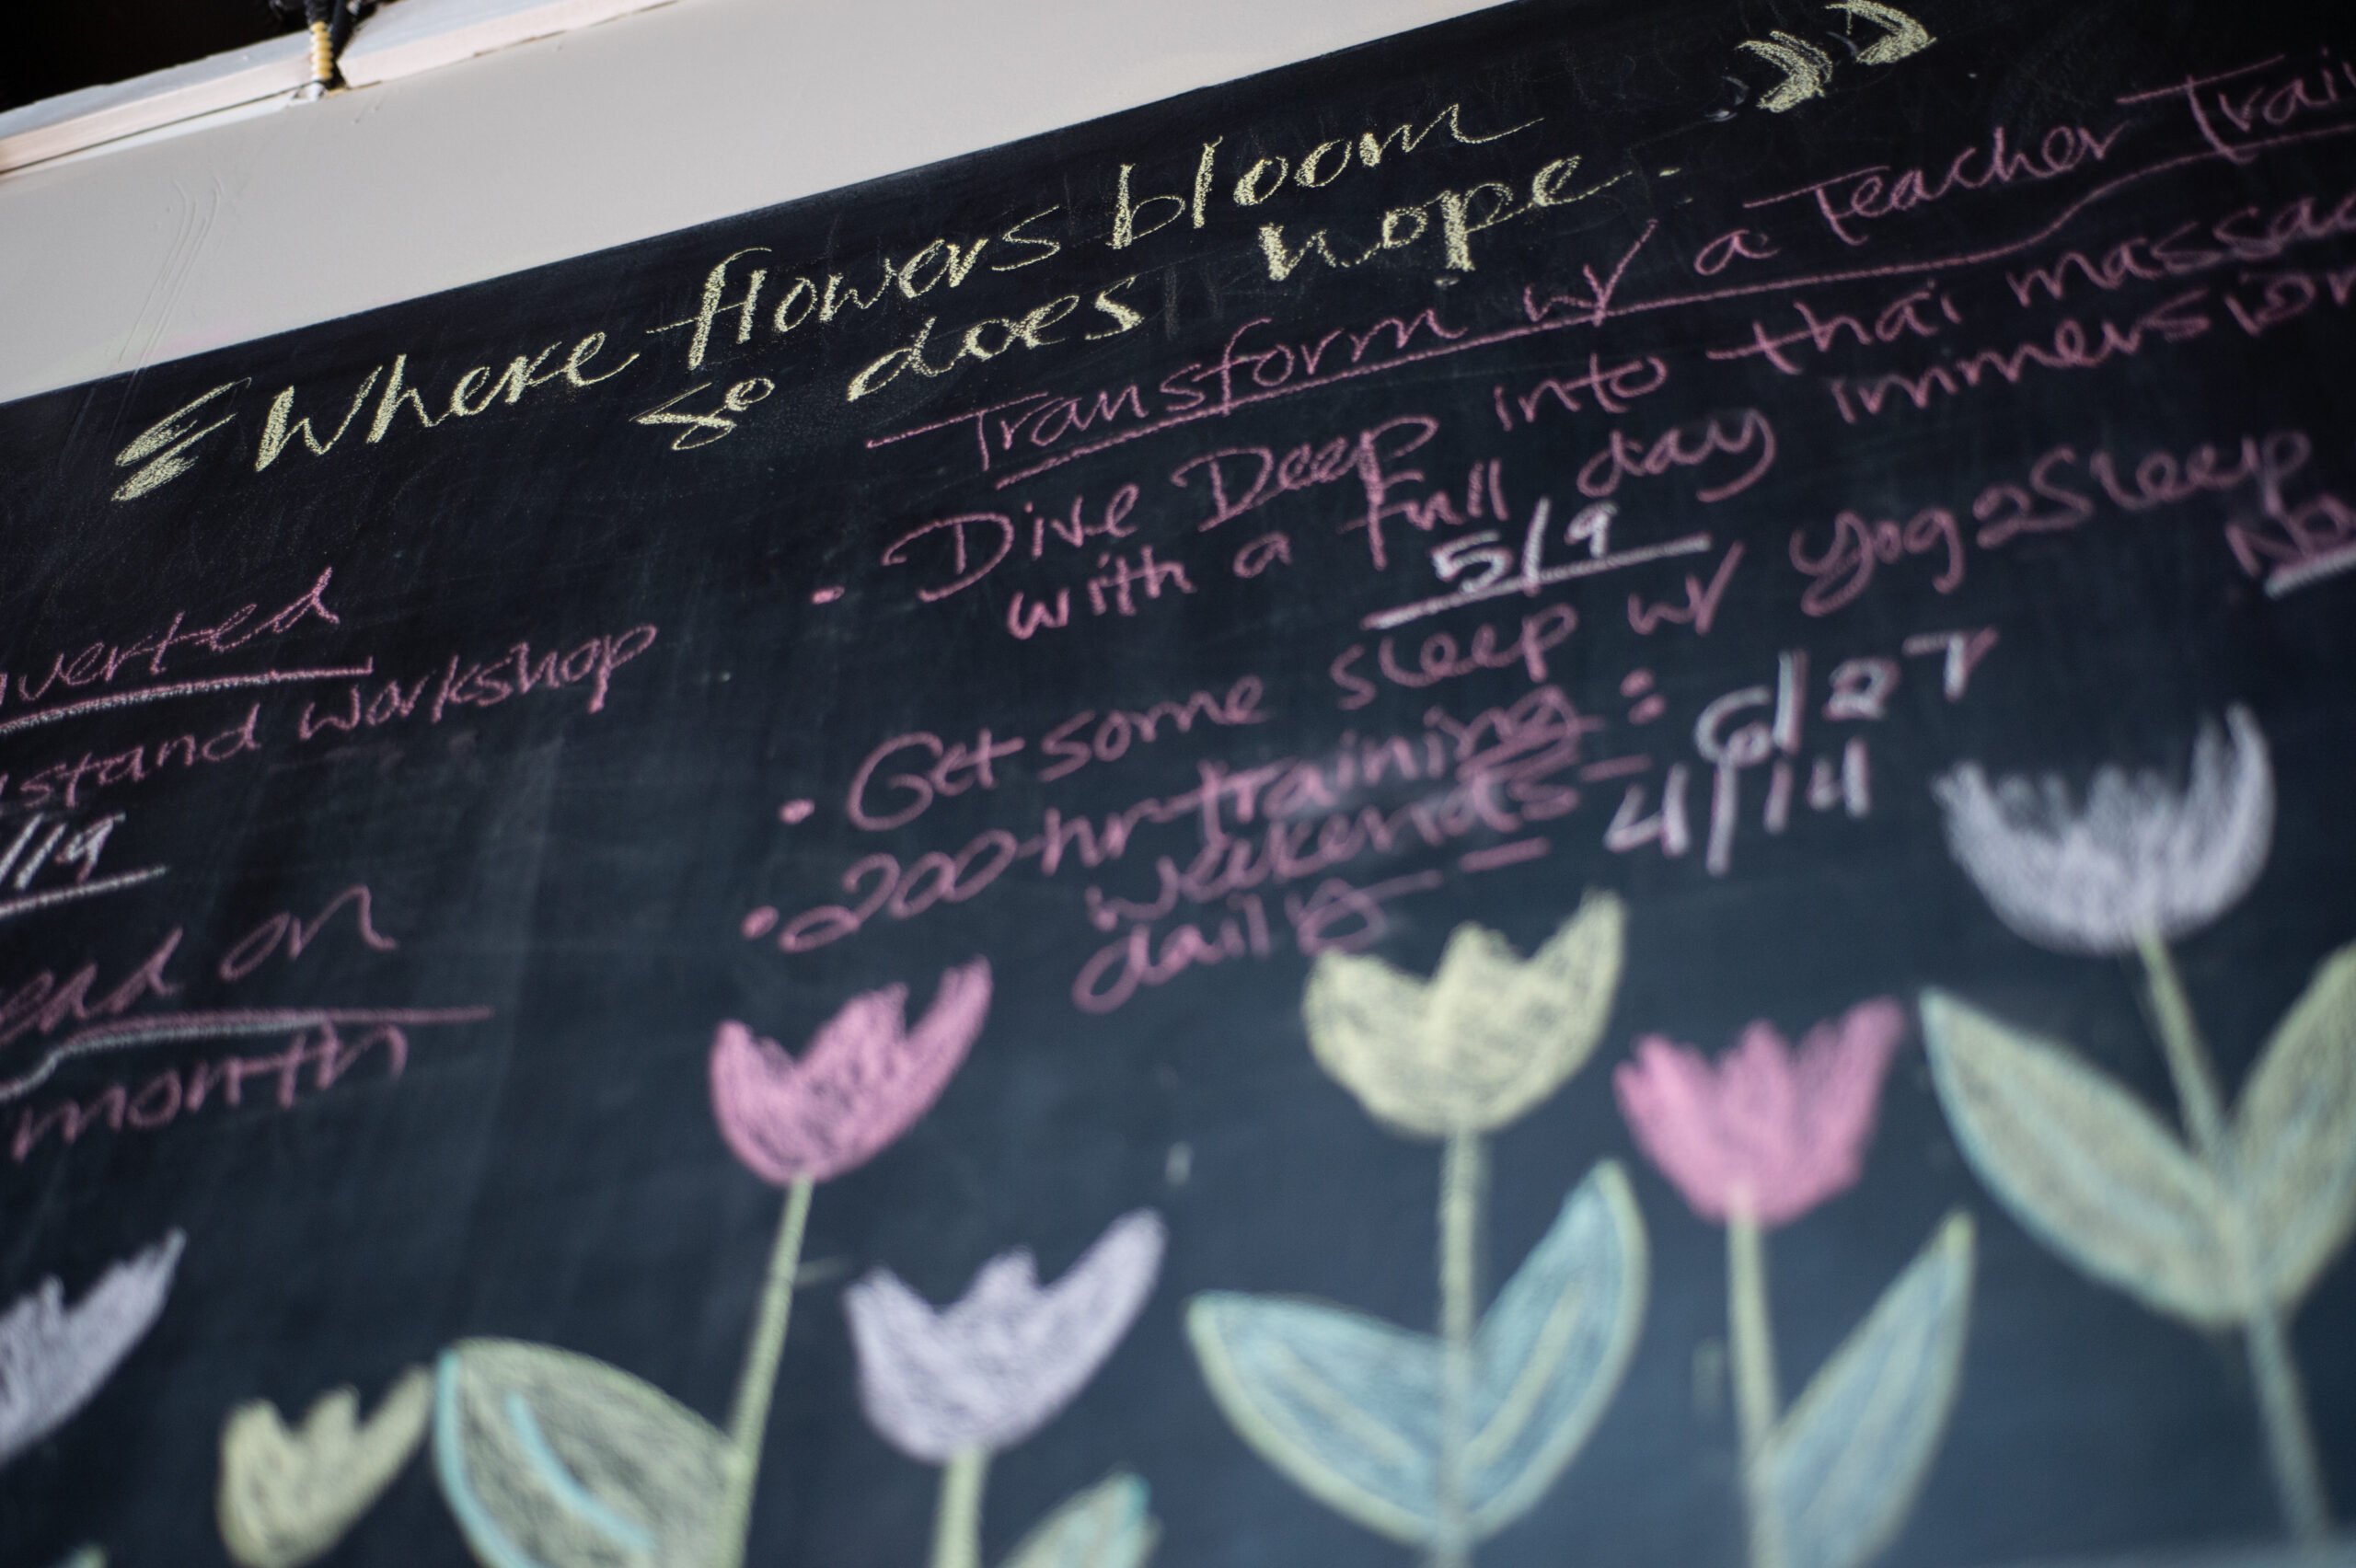 Where flowers bloom
so does hope.
verted
stand workshop
/19
ead on
month
Transform w/ a Teacher Trai
• Dive Deep into thai massa
with a full day immersion
5/9
• Get some sleep w/ Yog2Sleep
No
• 200-hr training:
weekends - 6/27
daily - 4/14